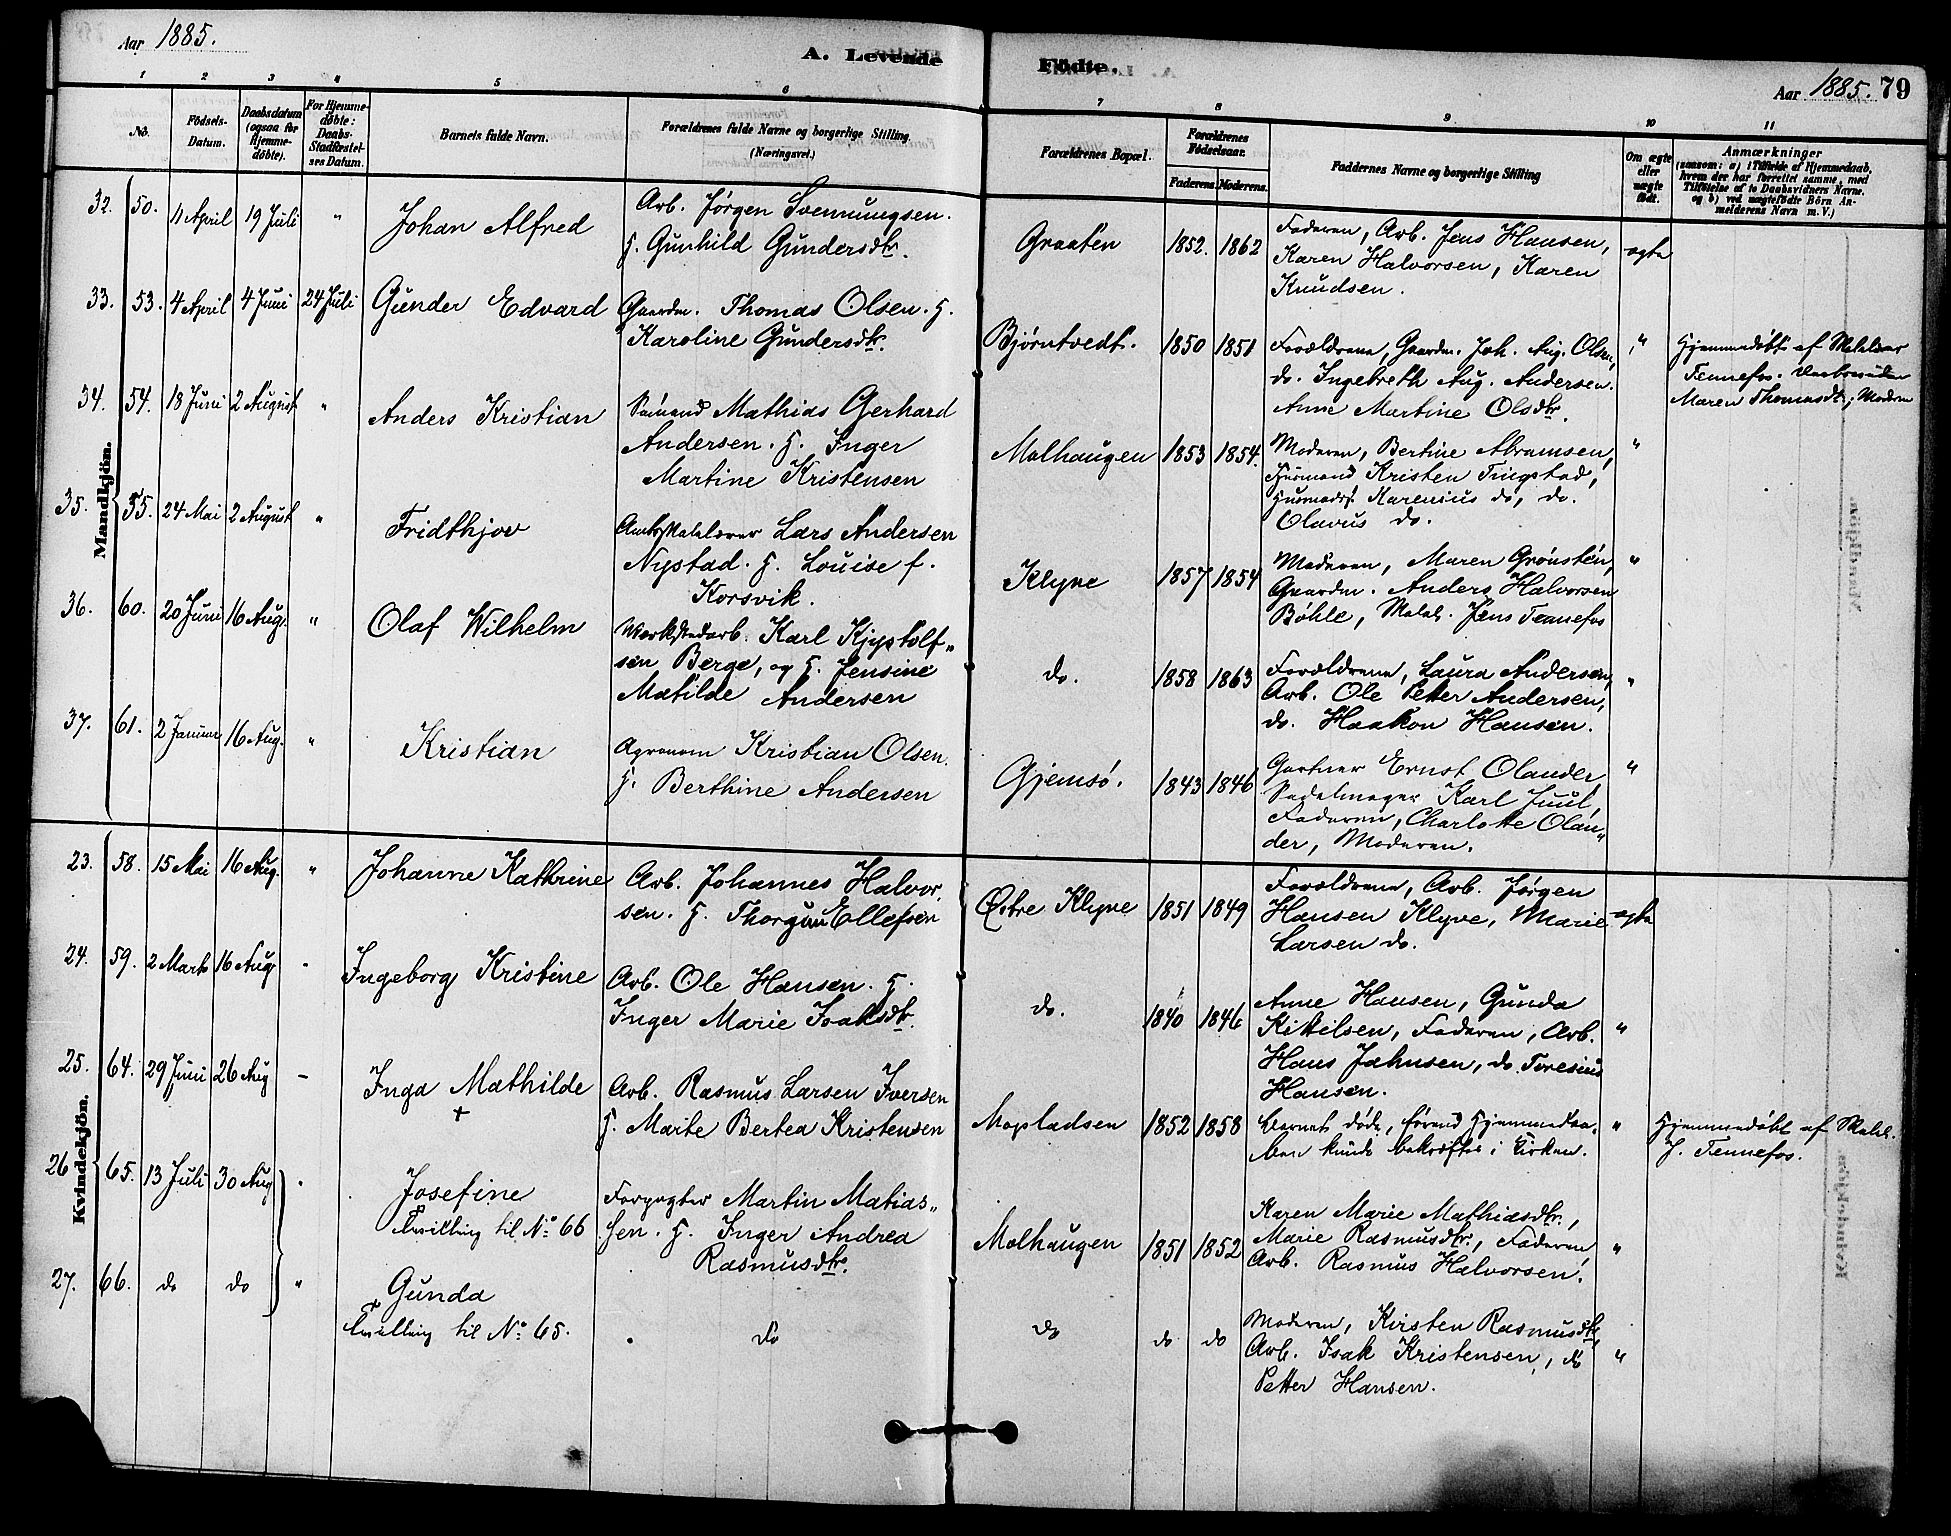 Aar 1885.
A. Levende Födte.
Aar 1885. 79
1 2 3 4 5 6 7 8 9 10 11
No.
Födsels-Datum.
Daabsdatum (ogsaa for Hjemme-döbte).
For Hjemme-döbte: Daabs-Stadfæstel-ses Datum.
Barnets fulde Navn.
Forældrenes fulde Navne og borgerlige Stilling.
(Næringsvei.)
Forældrenes Bopæl.
Forældrenes Födselsaar.
Faderens. Moderens.
Faddernes Navne og borgerlige Stilling
Om ægte eller uægte födt.
Anmærkninger
(saasom: a) i Tilfælde af Hjemmedaab,
hvem der har forrettet samme, med
Tilföielse af to Daabsvidners Navne,
og b) ved uægtefödte Börn An-
melderens Navn m. V.)
Mandkjön.
32. 50. 11 April 19 Juli " Johan Alfred
Arb. Jørgen Svenungsen.
H. Gunhild Gundersdtr.
Graaten 1852. 1862
Faderen, Arb. Jens Hansen,
Karen Halvorsen, Karen
Knudsen.
ægte
33. 53. 4 April 4 Juni 24 Juli Gunder Edvard
Gaardm. Thomas Olsen. H.
Karoline Gundersdtr.
Bjørntvedt. 1850 1851
Forældrene, Gaardm. Joh. Aug. Olsen,
do. Ingebreth Aug. Andersen.
Anne Martine Olsdtr.
"
Hjemmedøbt af
Tennefos.
Maren Thomasdtr, Moderen
34. 54. 18 Juni 2 August " Anders Kristian
Sømand Mathias Gerhard
Andersen. H. Inger
Martine Kristensen
Mælhaugen 1853 1854.
Moderen, Bertine Abramsen,
Husmand Kristen Tingstad,
Husmandss. Marensius do, do.
Olavus do.
"
35. 55. 24 Mai 2 August " Fridthjov
Lars Andersen
Nystad. H. Louise f.
Korsvik.
Klyve 1857 1854
Moderen, Maren Grønsten,
Gaardm. Anders Halvorsen
Bøhle, Jens Tennefos
"
36. 60. 20 Juni 16 Aug. " Olaf Wilhelm
Værkstedarb. Karl
sen Berge, og H. Jensine
Matilde Andersen
do. 1858 1863
Forældrene, Laura Andersen,
Arb. Ole Petter Andersen,
do. Haakon Hansen.
"
37. 61. 2 Januar 16 Aug. " Kristian
Agronom Kristian Olsen.
H. Berthine Andersen
Gjemsø. 1843 1846
Gartner Ernst Olander,
Sadelmager Karl Juul,
Faderen, Charlotte Olan-
der, Moderen.
"
Kvindekjön.
23. 58. 15 Mai 16 Aug. " Johanne Kathrine
Arb. Johannes Halvor-
sen. H. Ellefsen
Østre Klyve 1851 1849
Forældrene, Arb. Jørgen
Hansen Klyve, Marie
Larsen do.
ægte
24. 59. 2 Marts 16 Aug. " Ingeborg Kristine
Arb. Ole Hansen. H.
Inger Marie Isaksdtr.
do. 1840 1846
Anne Hansen, Gunda
Kittilsen, Faderen, Arb.
Hans Jahnsen, do. Toresius
Hansen.
"
25. 64. 29 Juni 26 Aug — Inga Mathilde
+
Arb. Rasmus Larsen Iversen
H. Marte Bertea Kristensen
Mopladsen 1852 1858
Barnet døde, førend Hjemmedaa-
ben kunde bekræftes i Kirken.
"
Hjemmedøbt af
J. Tennefos.
26 65. 13 Juli 30 Aug " Josefine
Tvilling til No. 66
Forpagter Martin Matias-
sen. H. Inger Andrea
Rasmusdtr.
Mælhaugen 1851 1852
Karen Marie Mathiasdtr.,
Marie Rasmusdtr., Faderen,
Arb. Rasmus Halvorsen.
"
27. 66. do do " Gunda
Tvilling til No. 65.
do
do do do
Moderen, Kirsten Rasmusdtr,
Arb. Isak Kristensen, do
Petter Hansen.
"